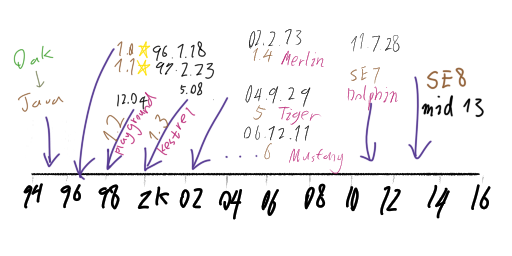 Oak
Java
1.0 96.1.18
1.1 97.2.23
12.04
1.2
playground
5.08
1.3
kestrel
02.2.13
1.4 Merlin
04.9.29
5 Tiger
06.12.11
6 Mustang
11.7.28
SE7
Dolphin
SE8
mid 13
94 96 98 2K 02 04 06 08 10 12 14 16